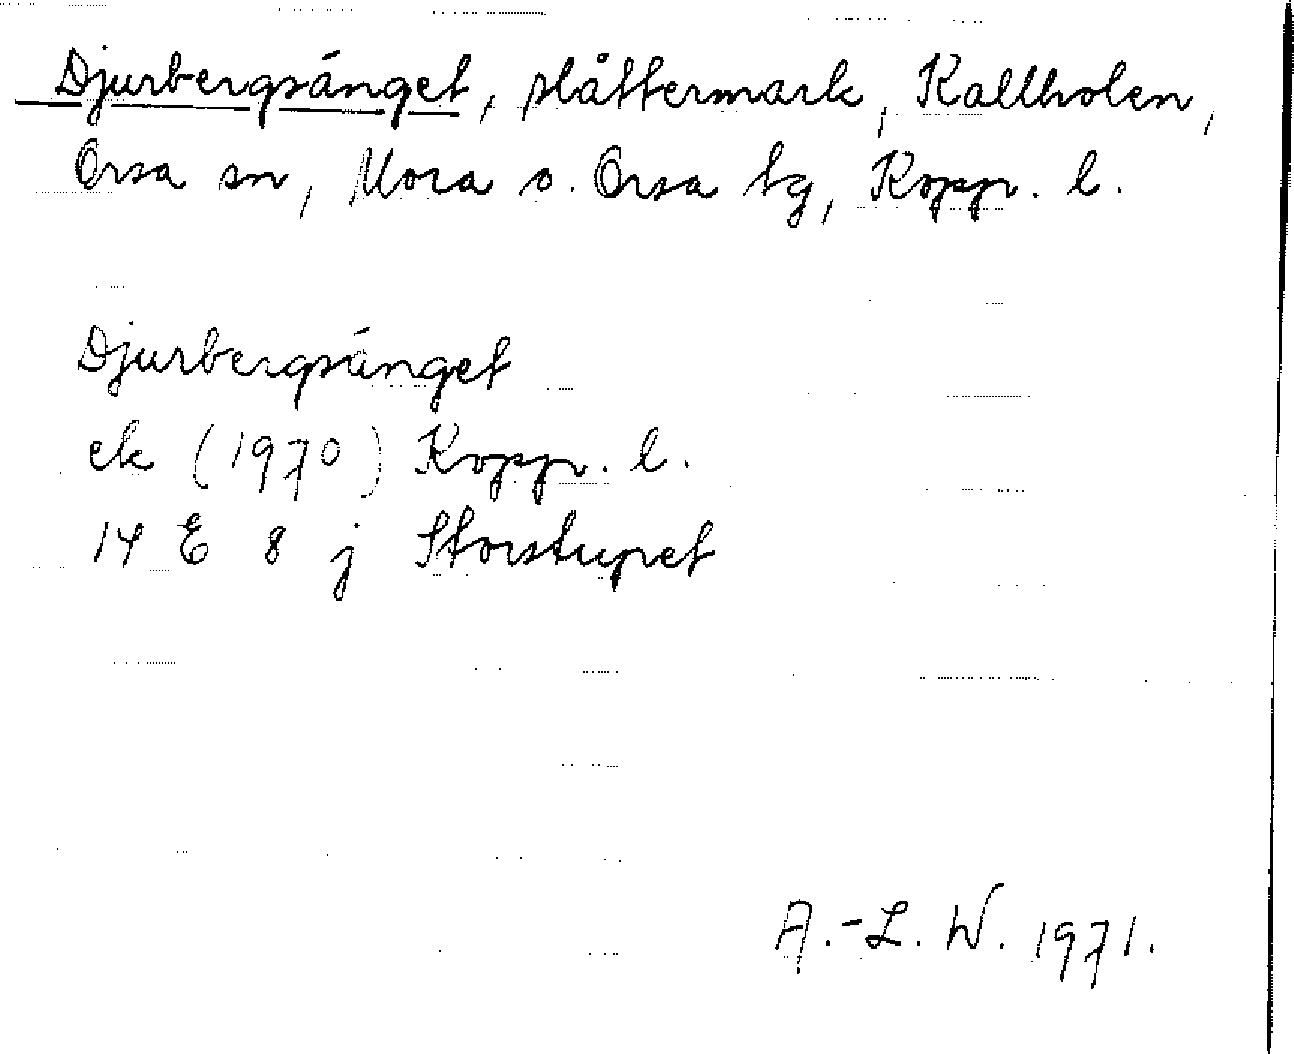 Djurbergsänget, slåttermark, Kallholen,
Orsa sn, Mora o. Orsa tg, Kopp. l.
Djurbergsänget
ek (1970) Kopp. l.
14 E 8 j Storstupet
A.-L. W. 1971.